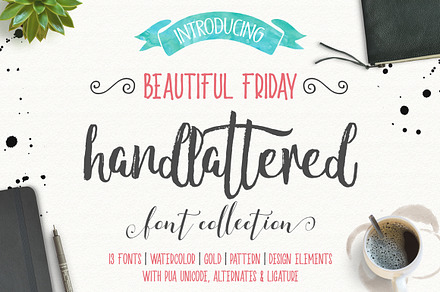 INTRODUCING
BEAUTIFUL FRIDAY
handlattered
font collection
13 FONTS | WATERCOLOR | GOLD | PATTERN | DESIGN ELEMENTS
WITH PUA UNICODE, ALTERNATIS & LIGATURE